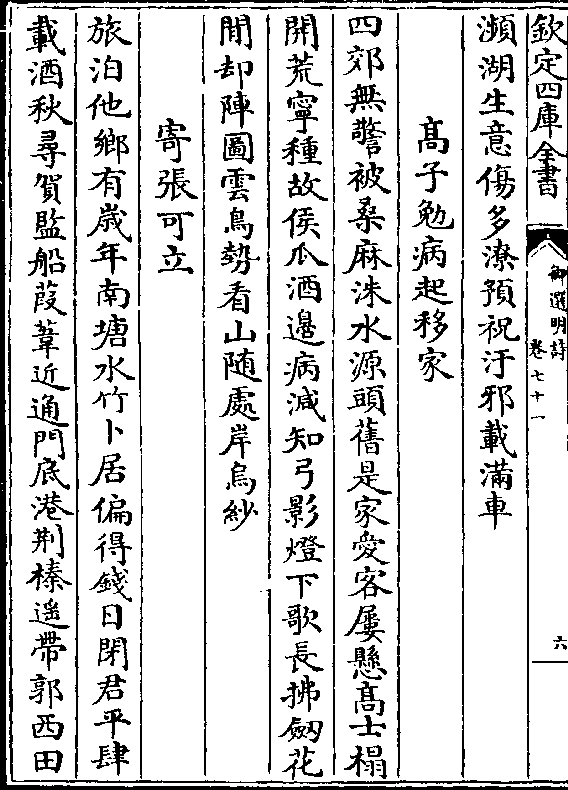 欽定四庫全書
御選明詩
卷七十一
六
瀕湖生意傷多潦預祝汙邪載滿車
高子勉病起移家
四郊無警被桑麻洙水源頭舊是家愛客屢懸高士榻
開荒寧種故侯瓜酒邉病減知弓影燈下歌長拂劒花
閒却陣圖雲鳥勢看山随處岸烏紗
寄張可立
旅泊他鄉有歲年南塘水竹卜居偏得錢日閉君平肆
載酒秋尋賀監船葭葦近通門底港荆榛遥帶郭西田